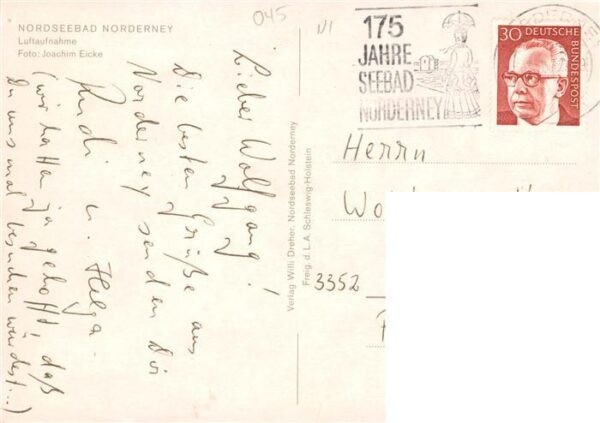 NORDSEEBAD NORDERNEY
Luftaufnahme
Foto: Joachim Eicke
045
175
JAHRE
SEEBAD
NORDERNEY
30 DEUTSCHE BUNDESPOST
Lieber Wolfgang!
Die besten Grüße aus
Norderney senden Dir
Rudi u. Helga.
(wir hatten ja gehofft, daß
Du uns mal besuchen würdest...)
Verlag Willi Dreher, Nordseebad Norderney
Freig. d. L.A. Schleswig-Holstein
Herrn
3352